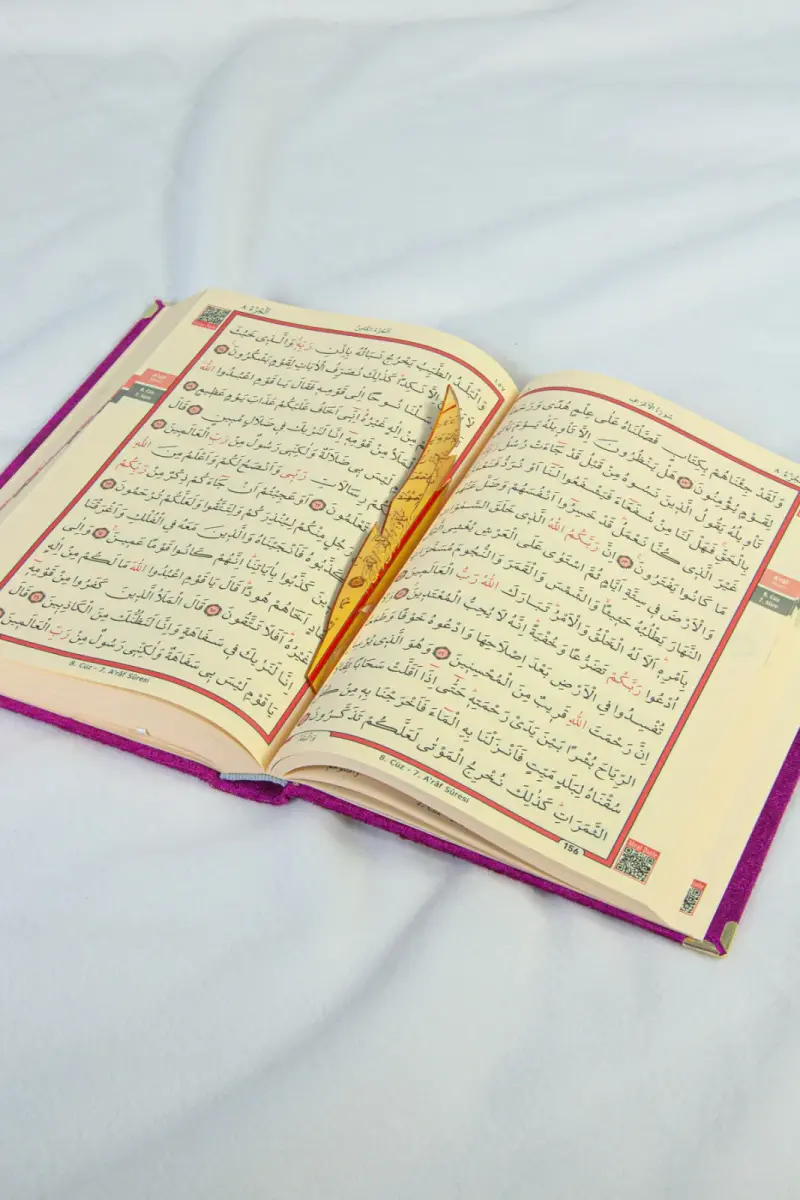 سُورَةُ الْاَعْرَافِ
وَلَقَدْ جِئْنَاهُمْ بِكِتَابٍ فَصَّلْنَاهُ عَلٰى عِلْمٍ هُدًى
لِقَوْمٍ يُؤْمِنُونَ هَلْ يَنْظُرُونَ اِلَّا تَأْوِيلَهُ يَوْمَ
تَأْوِيلُهُ يَقُولُ الَّذِينَ نَسُوهُ مِنْ قَبْلُ قَدْ جَاءَتْ رُسُلُ
بِالْحَقِّ فَهَلْ لَنَا مِنْ شُفَعَاءَ فَيَشْفَعُوا لَنَا اَوْ نُرَدُّ فَنَعْمَلَ
غَيْرَ الَّذِي كُنَّا نَعْمَلُ قَدْ خَسِرُوا اَنْفُسَهُمْ وَضَلَّ
مَا كَانُوا يَفْتَرُونَ اِنَّ رَبَّكُمُ اللّٰهُ الَّذِي خَلَقَ السَّمٰوَاتِ
وَالْاَرْضَ فِي سِتَّةِ اَيَّامٍ ثُمَّ اسْتَوٰى عَلَى الْعَرْشِ يُغْشِي
النَّهَارَ يَطْلُبُهُ حَثِيثًا وَالشَّمْسَ وَالْقَمَرَ وَالنُّجُومَ مُسَخَّرَاتٍ
بِاَمْرِهِ اَلَا لَهُ الْخَلْقُ وَالْاَمْرُ تَبَارَكَ اللّٰهُ رَبُّ الْعَالَمِينَ
اُدْعُوا رَبَّكُمْ تَضَرُّعًا وَخُفْيَةً اِنَّهُ لَا يُحِبُّ الْمُعْتَدِينَ وَلَا
تُفْسِدُوا فِي الْاَرْضِ بَعْدَ اِصْلَاحِهَا وَادْعُوهُ خَوْفًا وَطَمَعًا
اِنَّ رَحْمَتَ اللّٰهِ قَرِيبٌ مِنَ الْمُحْسِنِينَ وَهُوَ الَّذِي يُرْسِلُ
الرِّيَاحَ بُشْرًا بَيْنَ يَدَيْ رَحْمَتِهِ حَتّٰى اِذَا اَقَلَّتْ سَحَابًا ثِقَالًا
سُقْنَاهُ لِبَلَدٍ مَيِّتٍ فَاَنْزَلْنَا بِهِ الْمَاءَ فَاَخْرَجْنَا بِهِ مِنْ كُلِّ
الثَّمَرَاتِ كَذٰلِكَ نُخْرِجُ الْمَوْتٰى لَعَلَّكُمْ تَذَكَّرُونَ
8. Cüz - 7. A'râf Sûresi
156
A'râf
8. Cüz
7. Sûre
اَلْجُزْءُ ٨
اَلْجُزْءُ الثَّامِنُ
١٥٧
وَالْبَلَدُ الطَّيِّبُ يَخْرُجُ نَبَاتُهُ بِاِذْنِ رَبِّهِ وَالَّذِي خَبُثَ
لَا يَخْرُجُ اِلَّا نَكِدًا كَذٰلِكَ نُصَرِّفُ الْاٰيَاتِ لِقَوْمٍ يَشْكُرُونَ
اَرْسَلْنَا نُوحًا اِلٰى قَوْمِهِ فَقَالَ يَا قَوْمِ اعْبُدُوا اللّٰهَ
مِنْ اِلٰهٍ غَيْرُهُ اِنِّي اَخَافُ عَلَيْكُمْ عَذَابَ يَوْمٍ عَظِيمٍ
الْمَلَاُ مِنْ قَوْمِهِ اِنَّا لَنَرٰيكَ فِي ضَلَالٍ مُبِينٍ قَالَ
لَيْسَ بِي ضَلَالَةٌ وَلٰكِنِّي رَسُولٌ مِنْ رَبِّ الْعَالَمِينَ
رِسَالَاتِ رَبِّي وَاَنْصَحُ لَكُمْ وَاَعْلَمُ مِنَ اللّٰهِ
تَعْلَمُونَ اَوَعَجِبْتُمْ اَنْ جَاءَكُمْ ذِكْرٌ مِنْ رَبِّكُمْ
رَجُلٍ مِنْكُمْ لِيُنْذِرَكُمْ وَلِتَتَّقُوا وَلَعَلَّكُمْ تُرْحَمُونَ
فَكَذَّبُوهُ فَاَنْجَيْنَاهُ وَالَّذِينَ مَعَهُ فِي الْفُلْكِ وَاَغْرَقْنَا
الَّذِينَ كَذَّبُوا بِاٰيَاتِنَا اِنَّهُمْ كَانُوا قَوْمًا عَمِينَ وَاِلٰى
عَادٍ اَخَاهُمْ هُودًا قَالَ يَا قَوْمِ اعْبُدُوا اللّٰهَ مَا لَكُمْ مِنْ اِلٰهٍ
غَيْرُهُ اَفَلَا تَتَّقُونَ قَالَ الْمَلَاُ الَّذِينَ كَفَرُوا مِنْ قَوْمِهِ
اِنَّا لَنَرٰيكَ فِي سَفَاهَةٍ وَاِنَّا لَنَظُنُّكَ مِنَ الْكَاذِبِينَ قَالَ
يَا قَوْمِ لَيْسَ بِي سَفَاهَةٌ وَلٰكِنِّي رَسُولٌ مِنْ رَبِّ الْعَالَمِينَ
8. Cüz - 7. A'râf Sûresi
A'râf
8. Cüz
7. Sûre